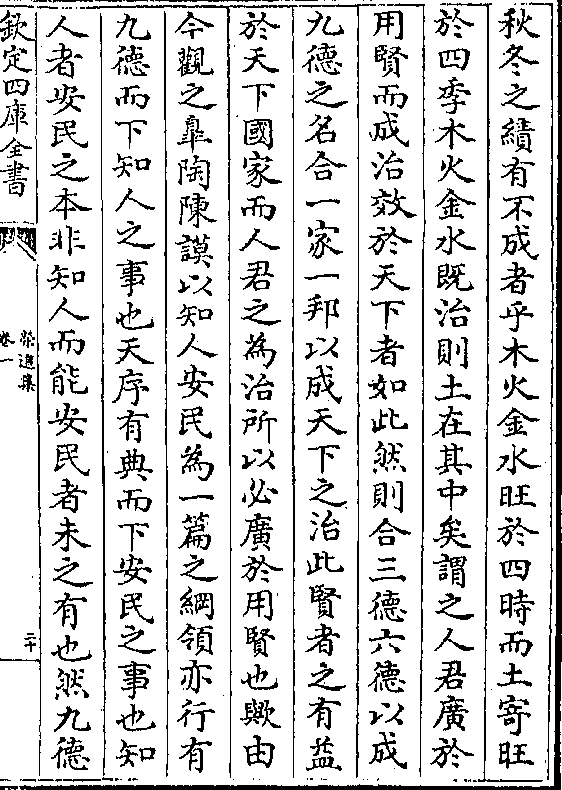 秋冬之績有不成者乎木火金水旺於四時而土寄旺
於四季木火金水既治則土在其中矣謂之人君廣於
用賢而成治效於天下者如此然則合三德六德以成
九德之名合一家一邦以成天下之治此賢者之有益
於天下國家而人君之為治所以必廣於用賢也歟由
今觀之臯陶陳謨以知人安民為一篇之綱領亦行有
九德而下知人之事也天序有典而下安民之事也知
人者安民之本非知人而能安民者未之有也然九德
欽定四庫全書
卷一
二十